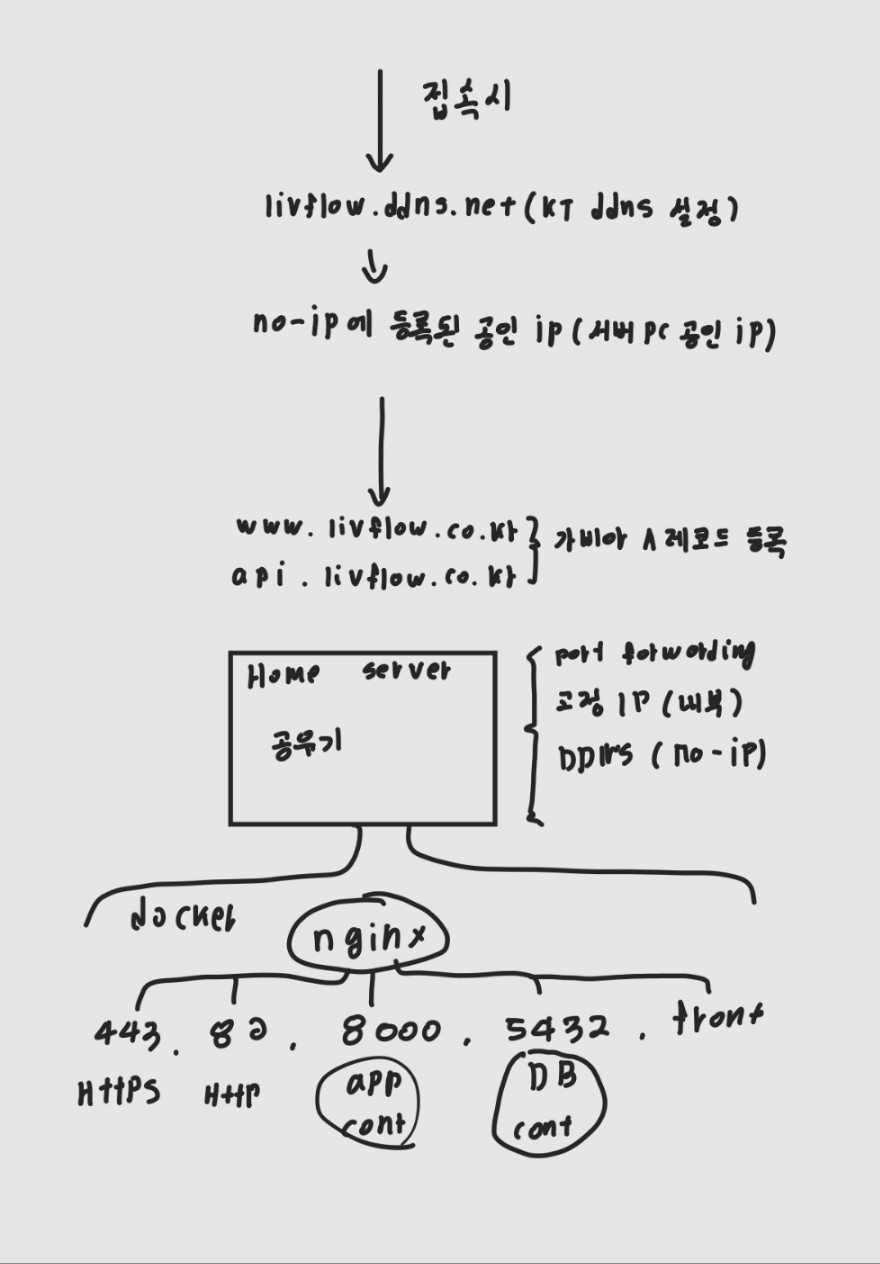 접속시
livflow.ddns.net (KT ddns 설정)
no-ip에 등록된 공인 ip (서버 pc 공인 ip)
www.livflow.co.kr
api.livflow.co.kr
가비아 A 레코드 등록
Home server
공유기
port forwarding
고정 IP (내부)
DDNS (no-ip)
docker
nginx
443 . 80 . 8000 . 5432 . front
HttPS Http app DB
cont cont